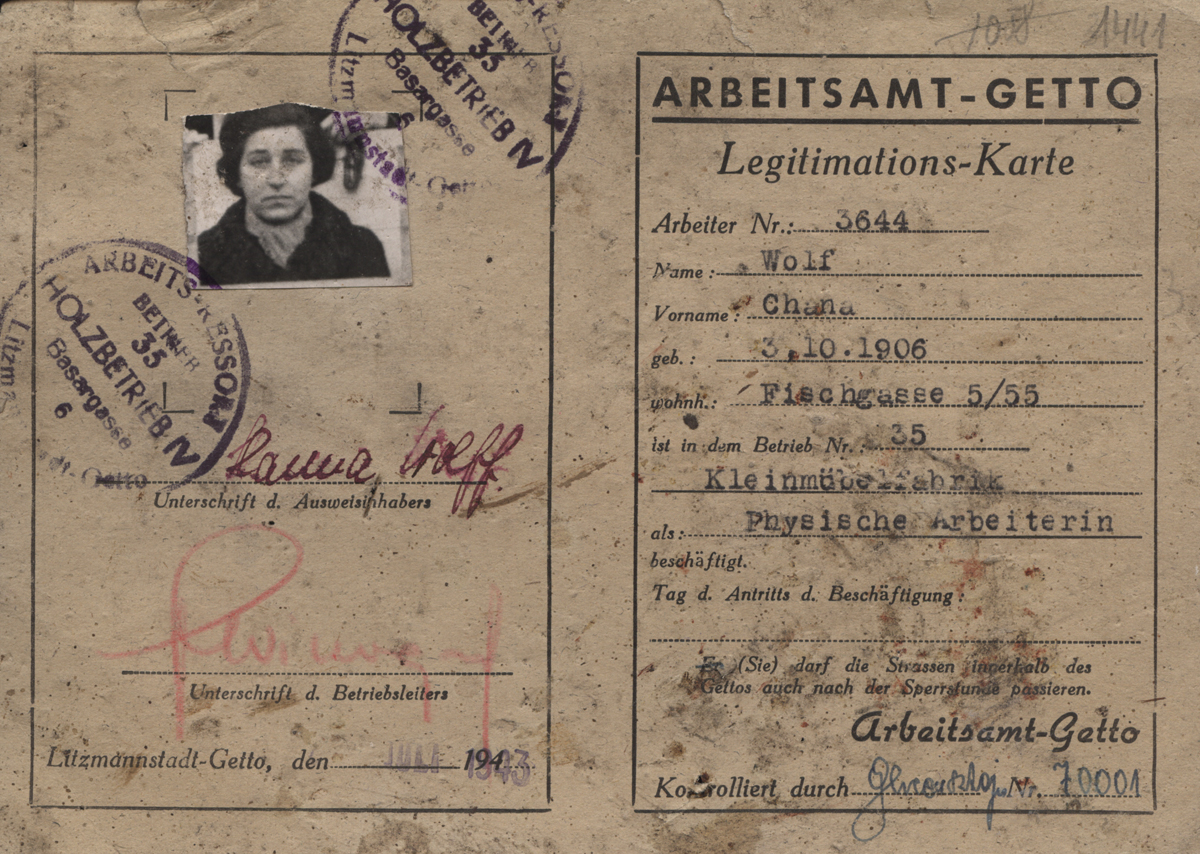 ARBEITS-RESSORT
BETR.NR
35
HOLZBETRIEB IV
Basargasse
6
Litzmannstadt-Getto
ARBEITS-RESSORT
BETR.NR
35
HOLZBETRIEB IV
Basargasse
6
Hanna Wolff
Unterschrift d. Ausweisinhabers
Unterschrift d. Betriebsleiters
Litzmannstadt-Getto, den JULI 1943
1441
ARBEITSAMT-GETTO
Legitimations-Karte
Arbeiter Nr.: 3644
Name: Wolf
Vorname: Chana
geb.: 3.10.1906
wohnh.: Fischgasse 5/55
ist in dem Betrieb Nr.: 35
Kleinmöbelfabrik
als: Physische Arbeiterin
beschäftigt.
Tag d. Antritts d. Beschäftigung:
Er (Sie) darf die Strassen innerhalb des
Gettos auch nach der Sperrstunde passieren.
Arbeitsamt-Getto
Kontrolliert durch Nr. 70001